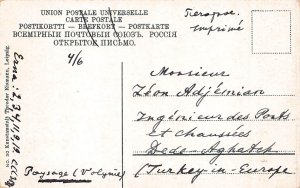 UNION POSTALE UNIVERSELLE
CARTE POSTALE
POSTIKORTTI — BREFKORT — POSTKARTE
ВСЕМІРНЫЙ ПОЧТОВЫЙ СОЮЗЪ. РОССІЯ
ОТКРЫТОЕ ПИСЬМО.
4/6
Imprimé
Monsieur
Léon Adjémian
Ingénieur des Ponts
et chaussées
Dede-Aghatch
(Turkey-in-Europe)
Paysage (Volynie)
Kunstanstalt Theodor Eismann, Leipzig.